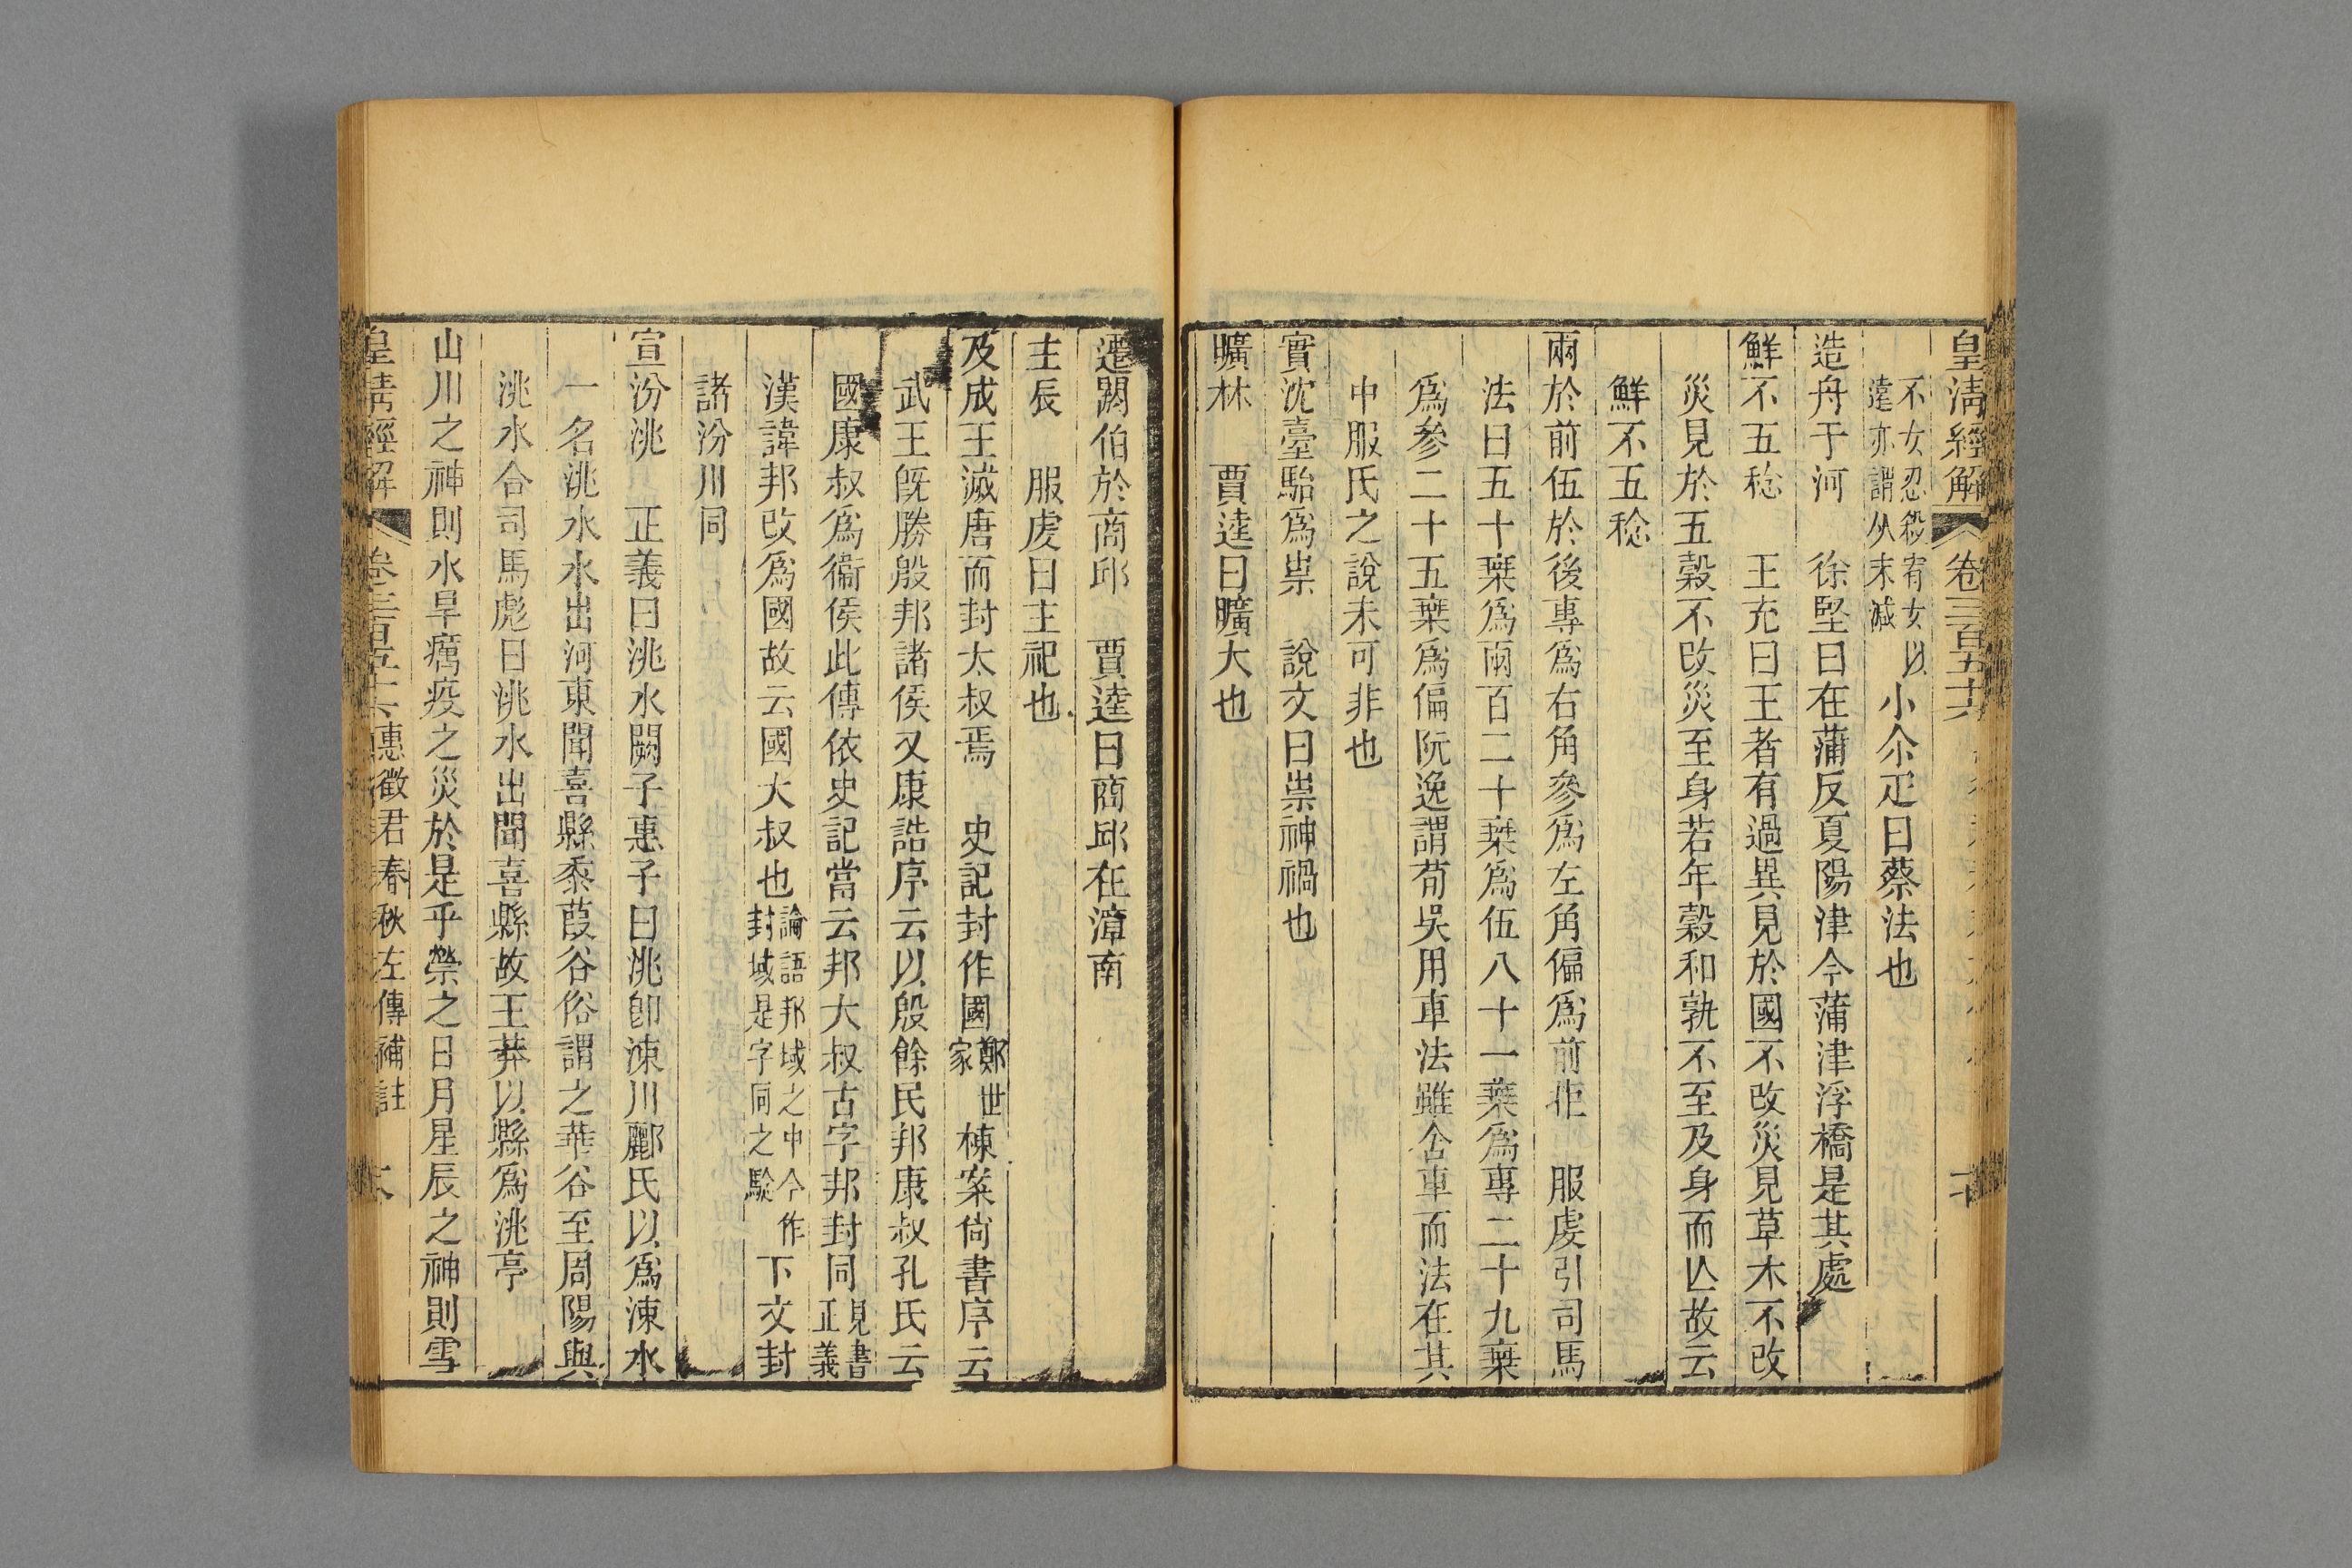 皇清經解 卷三百五十六
不女忍殺宥女以
遠亦謂从末減
小尒疋曰蔡法也
造舟于河 徐堅曰在蒲反夏陽津今蒲津浮橋是其處
鮮不五稔 王充曰王者有過異見於國不改災見草木不改
災見於五穀不改災至身若年穀和孰不至及身而亾故云
鮮不五稔
兩於前伍於後專爲右角參爲左角偏爲前拒 服虔引司馬
法曰五十椉爲兩百二十椉爲伍八十一椉爲專二十九椉
爲參二十五椉爲偏阮逸謂荀吳用車法雖舍車而法在其
中服氏之說未可非也
實沈臺駘爲祟 說文曰祟神禍也
曠林 賈逵曰曠大也
遷閼伯於商邱 賈逵曰商邱在漳南
主辰 服虔曰主祀也
及成王滅唐而封太叔焉 史記封作國鄭世家棟案尙書序云
武王旣勝殷邦諸侯又康誥序云以殷餘民邦康叔孔氏云
國康叔爲衞侯此傳依史記當云邦大叔古字邦封同見書正義
漢諱邦改爲國故云國大叔也論語邦域之中今作封域是字同之驗下文封
諸汾川同
宣汾洮 正義曰洮水闕子惠子曰洮卽涑川酈氏以爲涑水
一名洮水水出河東聞喜縣黍葭谷俗謂之華谷至周陽與
洮水合司馬彪曰洮水出聞喜縣故王莽以縣爲洮亭
山川之神則水旱癘疫之災於是乎禜之日月星辰之神則雪
皇清經解 卷三百五十六 惠徵君春秋左傳補註